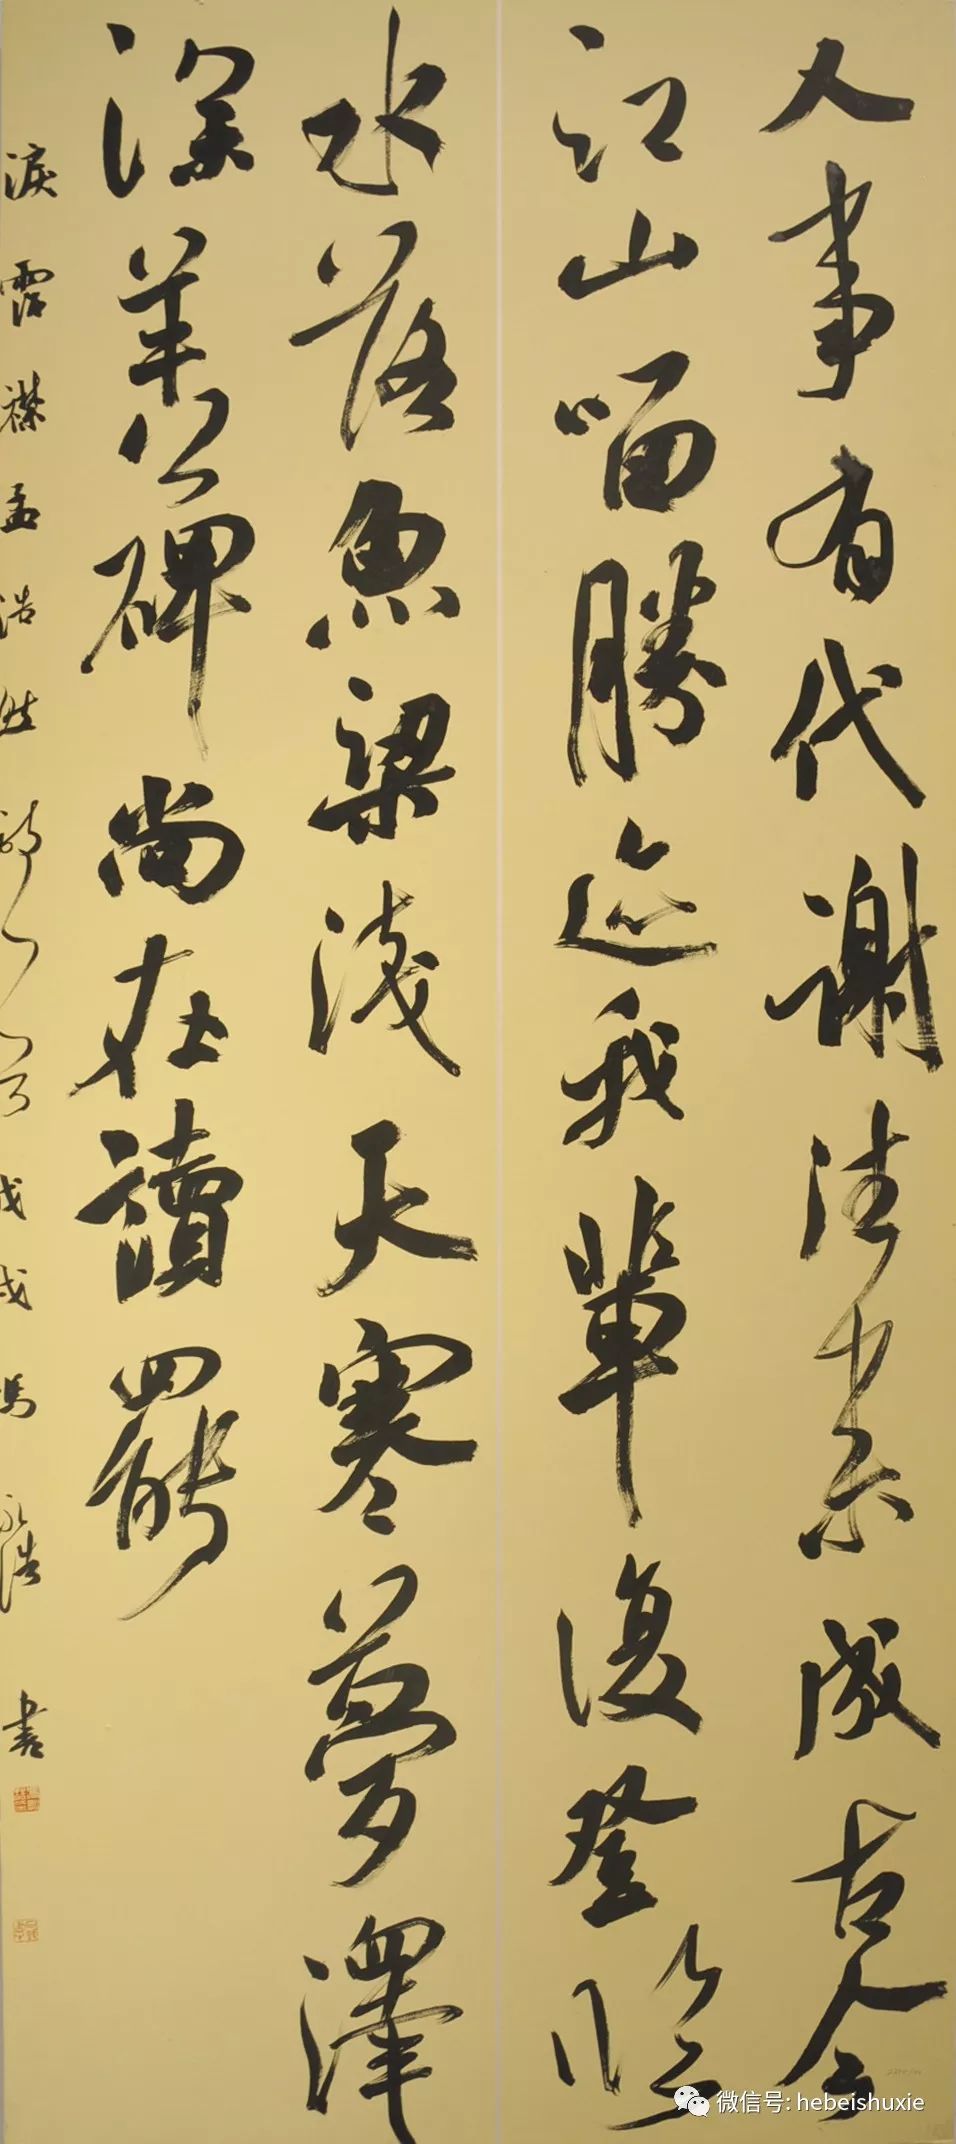 人事有代謝往来成古今
江山留勝迹我輩復登臨
水落魚梁淺天寒夢澤
深羊公碑尚在讀罷
淚霑襟孟浩然詩一首戊戌馮永浩書
微信号: hebeishuxie